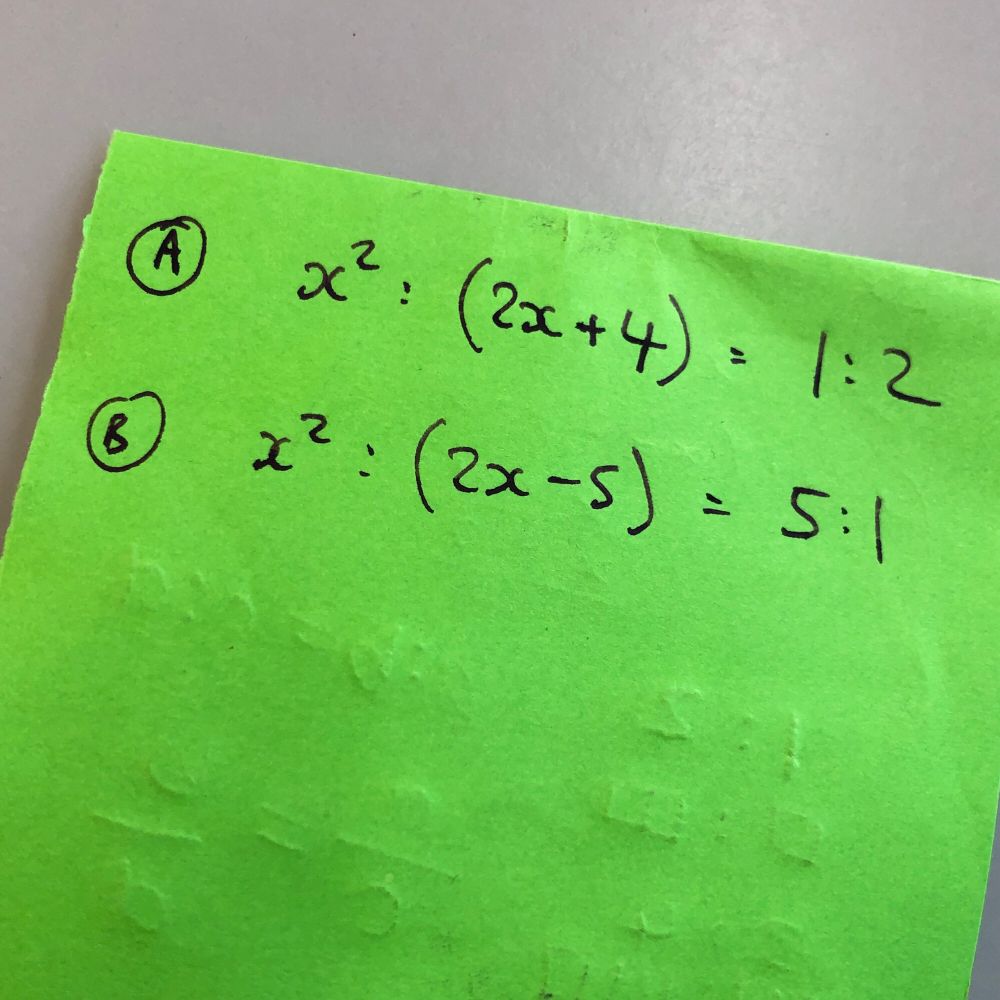 A x² : (2x+4) = 1:2
B x² : (2x-5) = 5:1